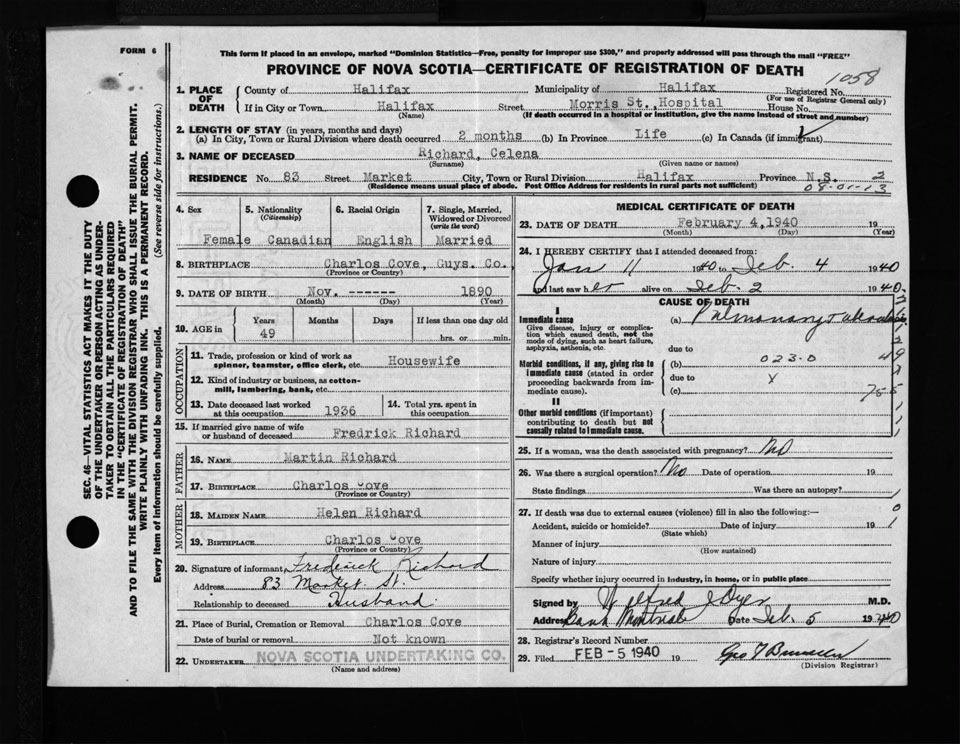 FORM 6
This form if placed in an envelope, marked "Dominion Statistics—Free, penalty for improper use $300," and properly addressed will pass through the mail "FREE"
PROVINCE OF NOVA SCOTIA—CERTIFICATE OF REGISTRATION OF DEATH
1058
SEC. 46—VITAL STATISTICS ACT MAKES IT THE DUTY
OF THE UNDERTAKER OR PERSON ACTING AS UNDER-
TAKER TO OBTAIN ALL THE PARTICULARS REQUIRED
IN THE "CERTIFICATE OF REGISTRATION OF DEATH"
AND TO FILE THE SAME WITH THE DIVISION REGISTRAR WHO SHALL ISSUE THE BURIAL PERMIT.
WRITE PLAINLY WITH UNFADING INK. THIS IS A PERMANENT RECORD.
Every item of information should be carefully supplied. (See reverse side for instructions.)
1. PLACE OF DEATH
County of Halifax Municipality of Halifax Registered No.
(For use of Registrar General only)
If in City or Town Halifax Street Morris St., Hospital House No.
(Name) (If death occurred in a hospital or institution, give the name instead of street and number)
2. LENGTH OF STAY (in years, months and days)
(a) In City, Town or Rural Division where death occurred 2 months (b) In Province Life (c) In Canada (if immigrant)
3. NAME OF DECEASED Richard, Celena
(Surname) (Given name or names)
RESIDENCE No. 83 Street Market City, Town or Rural Division Halifax Province N.S. 2
(Residence means usual place of abode. Post Office Address for residents in rural parts not sufficient) 08-01-13
4. Sex 5. Nationality (Citizenship) 6. Racial Origin 7. Single, Married, Widowed or Divorced (write the word)
Female Canadian English Married
8. BIRTHPLACE Charlos Cove, Guys. Co.
(Province or Country)
9. DATE OF BIRTH Nov. ------- 1890
(Month) (Day) (Year)
10. AGE in Years Months Days If less than one day old
49 hrs. or min.
OCCUPATION
11. Trade, profession or kind of work as spinner, teamster, office clerk, etc. Housewife
12. Kind of industry or business, as cotton-mill, lumbering, bank, etc.
13. Date deceased last worked at this occupation 1936 14. Total yrs. spent in this occupation
15. If married give name of wife or husband of deceased Fredrick Richard
FATHER
16. NAME Martin Richard
17. BIRTHPLACE Charlos Cove
(Province or Country)
MOTHER
18. MAIDEN NAME Helen Richard
19. BIRTHPLACE Charlos Cove
(Province or Country)
20. Signature of informant Frederick Richard
Address 83 Market St.
Relationship to deceased Husband
21. Place of Burial, Cremation or Removal Charlos Cove
Date of burial or removal Not known
22. UNDERTAKER NOVA SCOTIA UNDERTAKING CO.
(Name and address)
MEDICAL CERTIFICATE OF DEATH
23. DATE OF DEATH February 4, 1940 19
(Month) (Day) (Year)
24. I HEREBY CERTIFY that I attended deceased from:
Jan 11 1940 to Feb. 4 1940
and last saw her alive on Feb. 2 1940
CAUSE OF DEATH
I
Immediate cause (a) Pulmonary
Give disease, injury or complication which caused death, not the mode of dying, such as heart failure, asphyxia, asthenia, etc.
due to
Morbid conditions, if any, giving rise to immediate cause (stated in order proceeding backwards from immediate cause).
(b) 023-0 49
due to X
(c)
II
Other morbid conditions (if important) contributing to death but not causally related to immediate cause.
25. If a woman, was the death associated with pregnancy? No
26. Was there a surgical operation? No Date of operation 19
State findings Was there an autopsy?
27. If death was due to external causes (violence) fill in also the following:—
Accident, suicide or homicide? Date of injury 19
(State which)
Manner of injury
(How sustained)
Nature of injury
Specify whether injury occurred in industry, in home, or in public place
Signed by Wilfred Dyer M.D.
Address Date Feb. 5 1940
28. Registrar's Record Number
29. Filed FEB -5 1940 19
(Division Registrar)